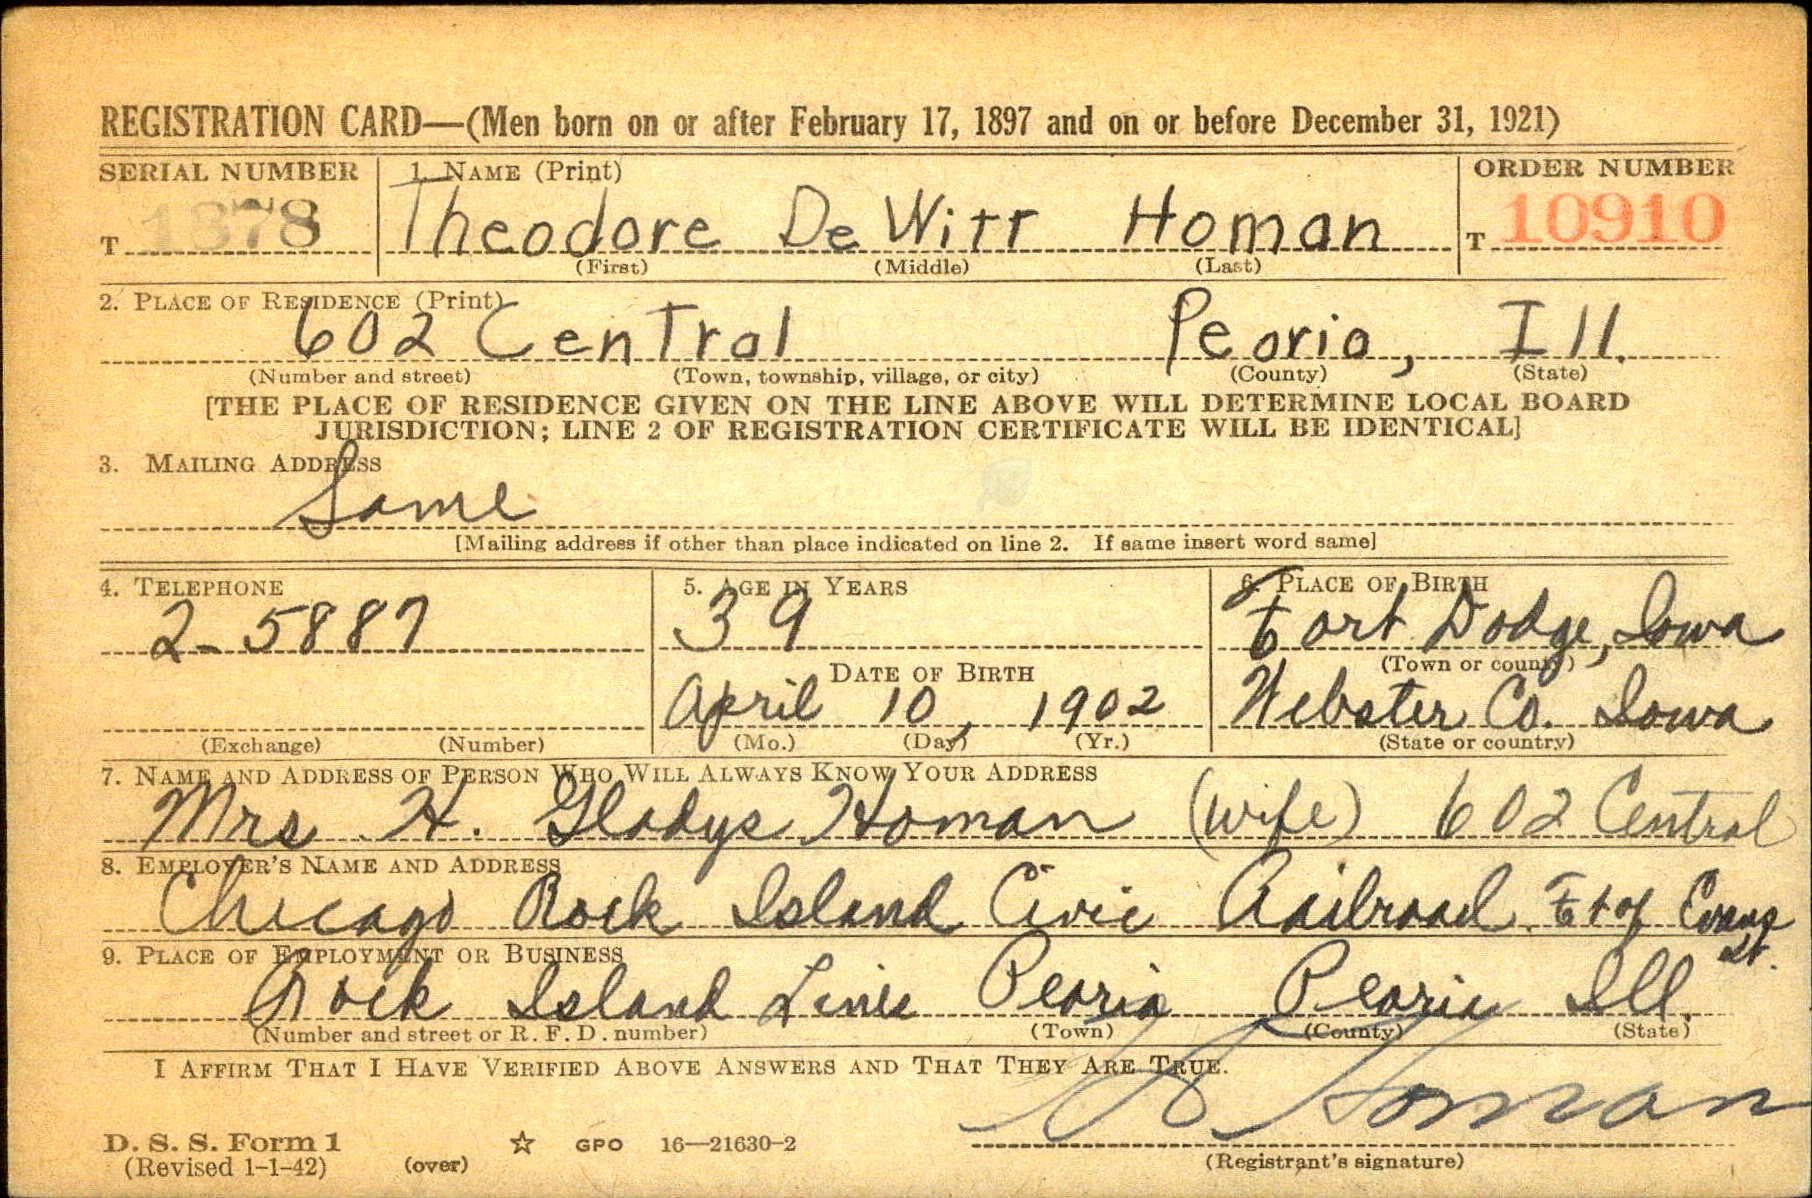 REGISTRATION CARD—(Men born on or after February 17, 1897 and on or before December 31, 1921)
SERIAL NUMBER 1. NAME (Print) ORDER NUMBER
T 1878 Theodore DeWitt Homan T 10910
(First) (Middle) (Last)
2. PLACE OF RESIDENCE (Print)
602 Central Peoria, Ill.
(Number and street) (Town, township, village, or city) (County) (State)
[THE PLACE OF RESIDENCE GIVEN ON THE LINE ABOVE WILL DETERMINE LOCAL BOARD
JURISDICTION; LINE 2 OF REGISTRATION CERTIFICATE WILL BE IDENTICAL]
3. MAILING ADDRESS
Same
[Mailing address if other than place indicated on line 2. If same insert word same]
4. TELEPHONE 5. AGE IN YEARS 6. PLACE OF BIRTH
2-5887 39 Fort Dodge, Iowa
DATE OF BIRTH (Town or county)
April 10, 1902 Webster Co. Iowa
(Exchange) (Number) (Mo.) (Day) (Yr.) (State or country)
7. NAME AND ADDRESS OF PERSON WHO WILL ALWAYS KNOW YOUR ADDRESS
Mrs H. Gladys Homan (wife) 602 Central
8. EMPLOYER'S NAME AND ADDRESS
Chicago Rock Island Civic Railroad Ft of Evans
St.
9. PLACE OF EMPLOYMENT OR BUSINESS
Rock Island Lines Peoria Peoria Ill.
(Number and street or R. F. D. number) (Town) (County) (State)
I AFFIRM THAT I HAVE VERIFIED ABOVE ANSWERS AND THAT THEY ARE TRUE.
Homan
D. S. S. Form 1
(Revised 1-1-42) (over) ☆ GPO 16—21630-2
(Registrant's signature)